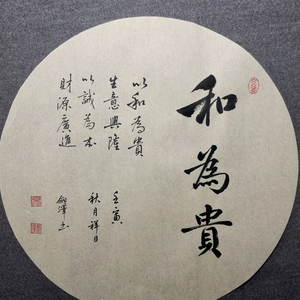 和為貴
以和為貴
生意興隆
以誠為本
財源廣進
壬寅
秋月祥日